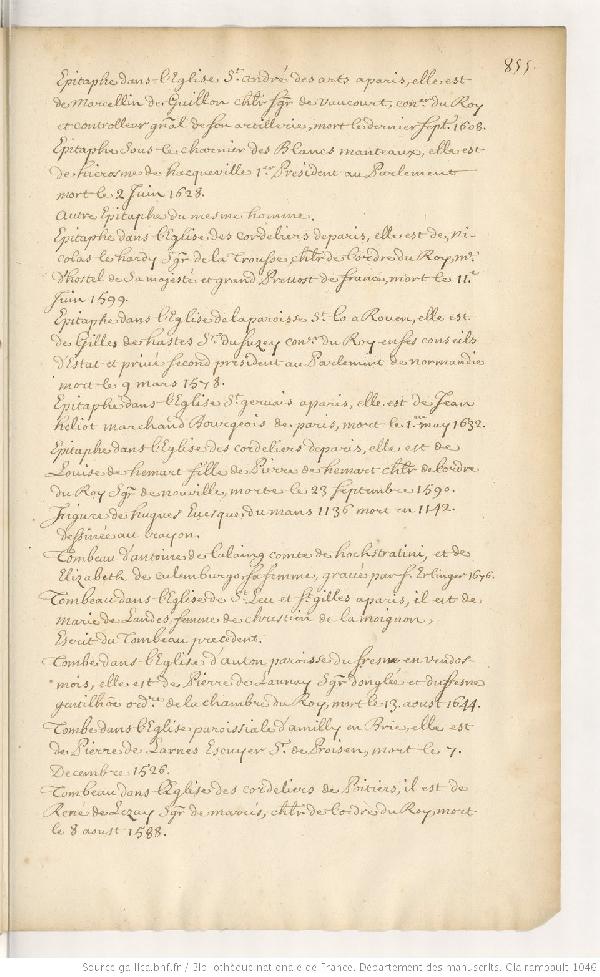 855.
Epitaphe dans l'Eglise St. andré des arts a paris, elle est
de Marcellin de Guillon chlr Sgr de Vaucourt, coner du Roy
et controlleur gnal de son artillerie, mort le dernier sept. 1608.
Epitaphe sous le charnier des Blancs manteaux, elle est
de hierosme de hacqueville 1er Président au Parlement
mort le 2 Juin 1628.
Autre Epitaphe du mesme homme.
Epitaphe dans l'Eglise des cordeliers de paris, elle est de, Ni-
colas le hardy Sgr de la Trousse, chlr de l'ordre du Roy, me.
d'hostel de Sa majesté et grand Prevost de france, mort le 11e
Juin 1599.
Epitaphe dans l'Eglise de la paroisse St. Lo a Rouen, elle est
de Gilles de hastes Sr. du Suzey coner du Roy en ses conseils
d'Estat et privé second president au Parlement de normandie
mort le 9 mars 1578.
Epitaphe dans l'Eglise St gervais a paris, elle est de Jean
heliot marchand Bourgeois de paris, mort le 1er may 1632.
Epitaphe dans l'Eglise des cordeliers de paris, elle est de
Louise de hemart fille de Pierre de hemart chlr de l'ordre
du Roy Sgr de nouville, morte le 23 septembre 1590.
figure de hugues Evesque du mans 1136 mort en 1142.
dessinée au crayon.
Tombeau d'antoine de lalaing comte de hochstratini, et de
Elizabeth de culemburgo sa femme, gravés par f. Erlinger 1676.
Tombeau dans l'Eglise de St. Leu et St gilles a paris, il est de
marie de Landes femme de chrestien de lamoignon,
Escrit du Tombeau precedent.
Tombe dans l'Eglise d'auton paroisse du fresne en vendos-
mois, elle est de Pierre de Launay Sgr d'onglée et du fresne
gentilhoe ordre de la chambre du Roy, mort le 13 aoust 1644.
Tombe dans l'Eglise paroissiale d'amilly en Brie, elle est
de Pierre de Larnes Escuyer Sr. de Proisen, mort le 7.
Decembre 1526.
Tombeau dans l'Eglise des cordeliers de Poitiers, il est de
René de Lezay Sgr de marais, chlr de l'ordre du Roy, mort
le 8 aoust 1588.
Source gallica.bnf.fr / Bibliothèque nationale de France. Département des manuscrits. Clairambault 1046